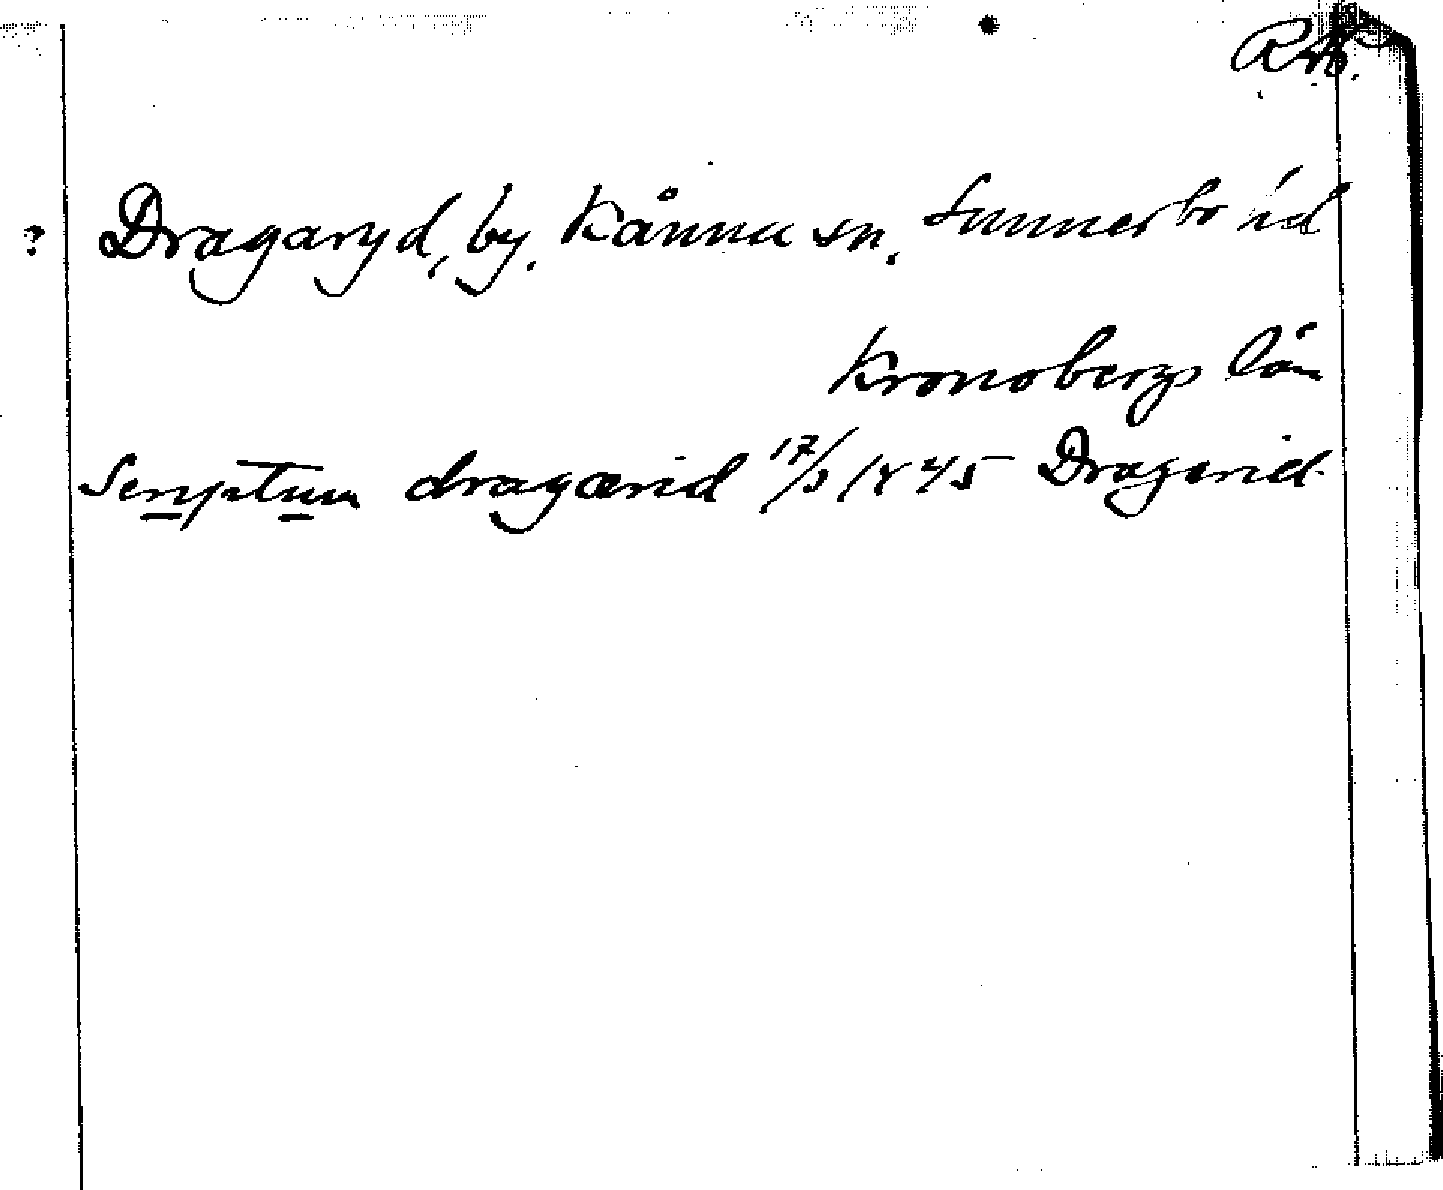 ? Dragaryd, by. Kånna sn. Sunnerbo hd
Kronobergs län
Scriptum dragærid 17/3 1445 Dragerid